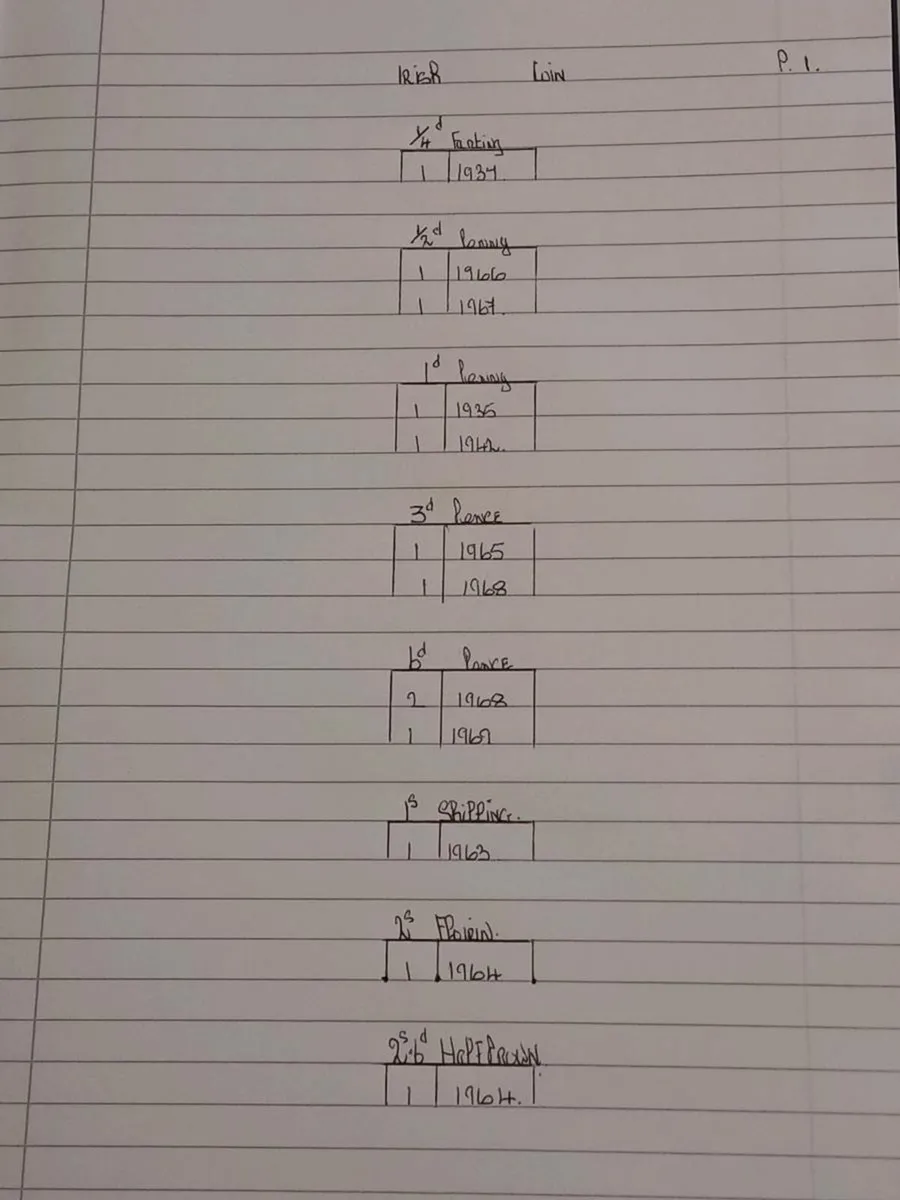 Irish Coin P. 1.
1/4d Farting
1 1937
1/2d Penny
1 1966
1 1967.
1d Penny
1 1935
1 1942.
3d Pence
1 1965
1 1968
6d Pence
2 1968
1 1969
1s Shilling.
1 1963
2s Floirin.
1 1964
2s.6d Half Crown
1 1964.